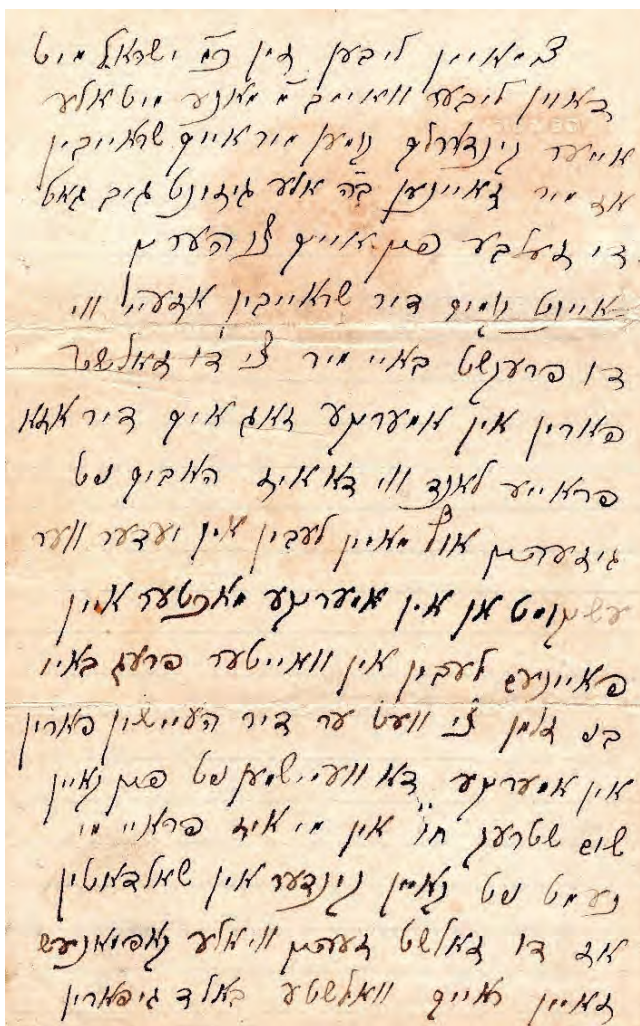 צו מאיין ליבען זין כ״מ ישראל מיט
דאיין ליבער וואייב מ׳ מאניע מיט אלע
אייער קינדערלך קומען מיר אייך שראייבין
אז מיר זאיינען ב״ה אלע גיזונט גיב גאט
די זעלבע פון אייך צו הערין
איינט קומיך דיר שראייבין אזעהיל ווי
דו פרעגשט באיי מיר צי דו זאלשט
פארין אין אמעריקע זאג איך דיר אזא
פראייע לאנד ווי דא איז האביך ניט
גיזעהען אויף מאיין לעבין אין יעדער ווער
עס קומט אן אין אמעריקע מאכטער איין
פאיינעם לעבין אין ווייטער פרעג באיי
בני זלמן צי וועט ער דיר העיישין פארין
אין אמעריקע דא ווייסמען ניט פון קאיין
שום שטרענג חו אין מי איז פראיי מי
נעמט ניט קאיין קינדער אין סאלדאטין
אז דו זאלשט זעהען וויאלע קאמפאניעס
זאיין ראייך וואלשטע באלד גיפארין